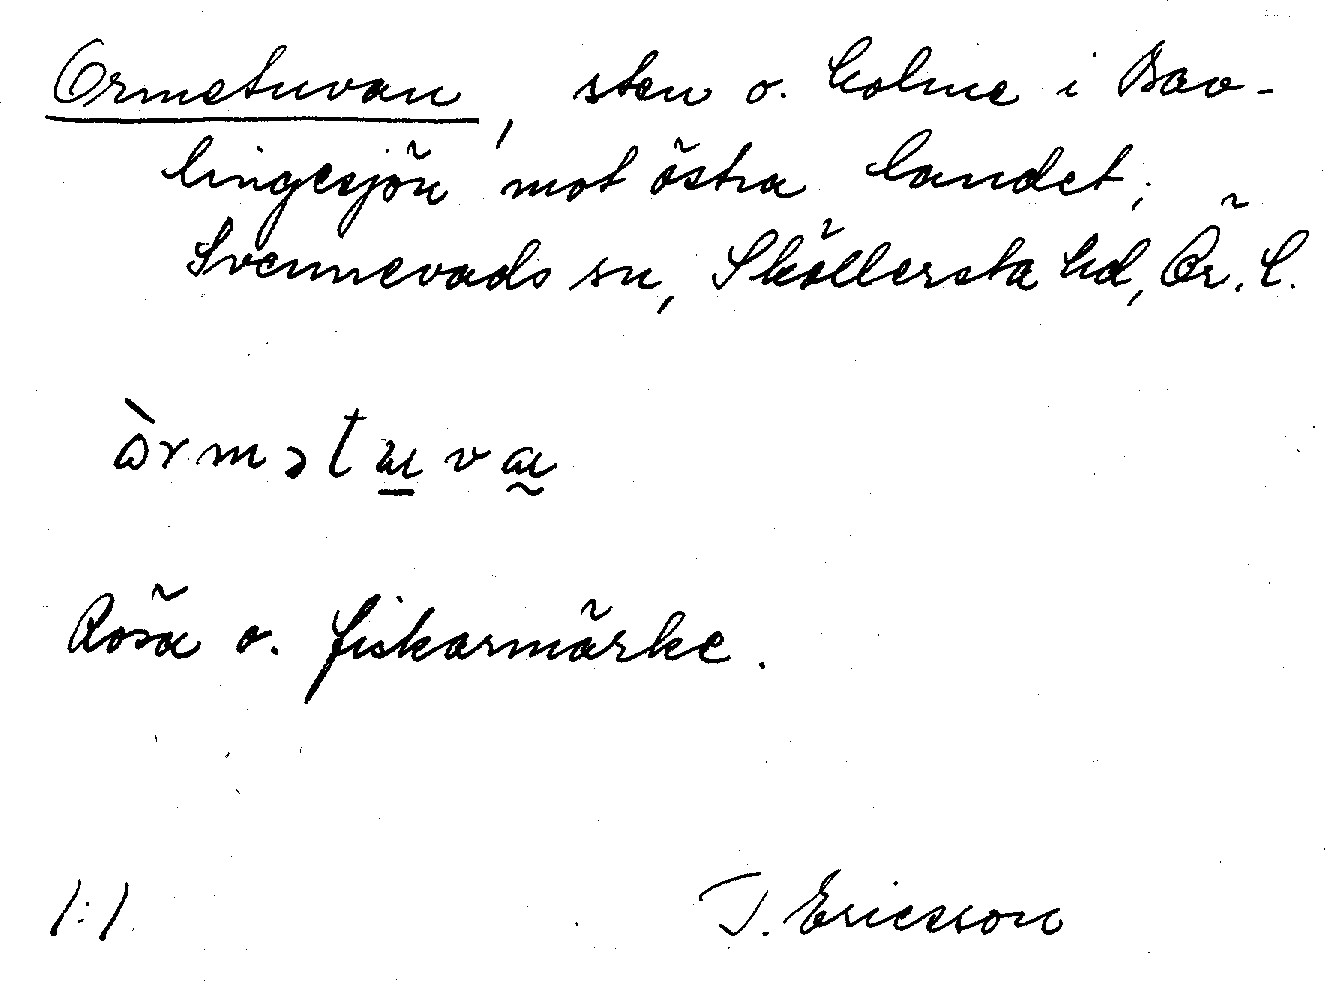 Ormetuvan, sten o. holme i Bav-
lingesjön mot östra landet;
Svennevads sn, Sköllersta hd, Ör. l.
òrmətuvaɯ
Röså o. fiskarmärke.
1:1
J. Ericsson